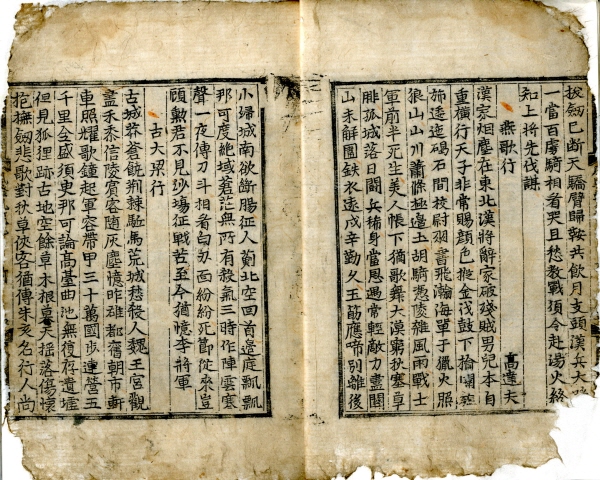 拔劒已斷天驕臂歸鞍共飮月支頭漢兵大
一當百虜騎相看哭且愁敎戰須令赴湯火終
知上將先伐謀
燕歌行 高達夫
漢家烟塵在東北漢將辭家破殘賊男兒本自
重橫行天子非常賜顔色摐金伐鼓下楡關旌
旆逶迤碣石間校尉羽書飛瀚海單于獵火照
狼山山川蕭條極邊土胡騎憑陵雜風雨戰士
軍前半死生美人帳下猶歌舞大漠窮秋塞草
腓孤城落日鬪兵稀身當恩遇常輕敵力盡關
山未解圍鉄衣遠戍辛勤久玉筯應啼別離後
少婦城南欲斷腸征人薊北空回首邊庭飄飄
那可度絶域蒼茫無所有殺氣三時作陣雲寒
聲一夜傳刀斗相看白刃血紛紛死節從來豈
顧勳君不見沙場征戰苦至今猶憶李將軍
古大梁行
古城莽蒼饒荊棘駈馬荒城愁殺人魏王宮觀
盡禾黍信陵賓客随灰塵憶昨雄都舊朝市軒
車照耀歌鍾起軍容帶甲三十萬國步連營五
千里全盛須臾那可論高臺曲池無復存遺墟
但見狐狸跡古地空餘草木根暮天搖落傷懷
抱撫劒悲歌對秋草俠客猶傳朱亥名行人尚